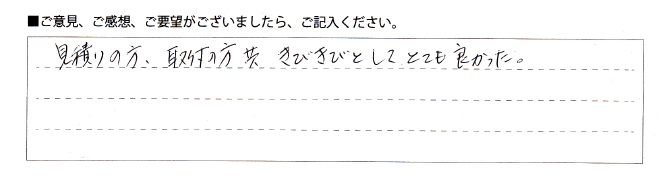 ■ご意見、ご感想、ご要望がございましたら、ご記入ください。
見積りの方、取付の方共 きびきびとしてとても良かった。